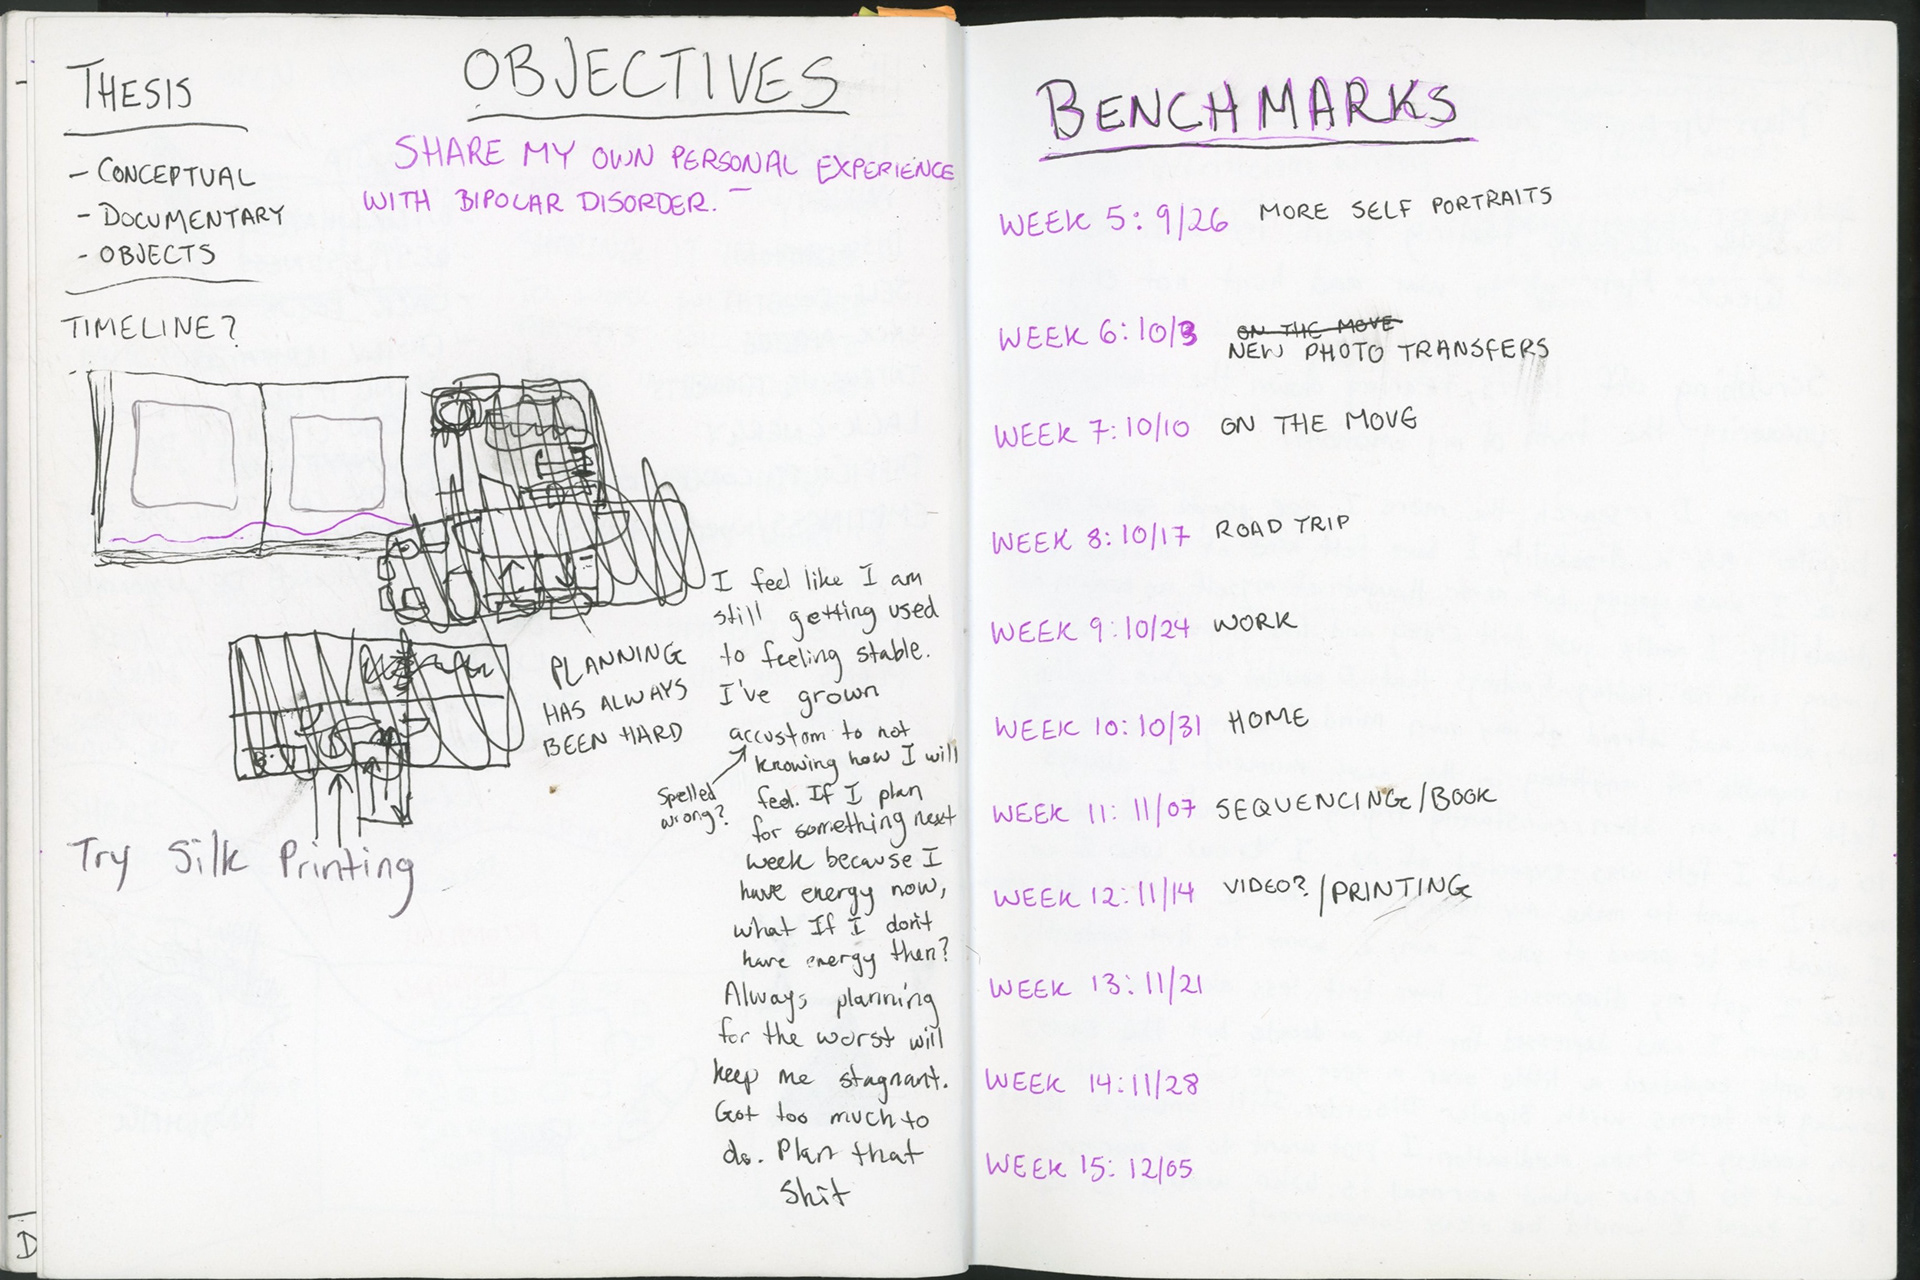 THESIS
- CONCEPTUAL
- DOCUMENTARY
- OBJECTS
TIMELINE?
OBJECTIVES
SHARE MY OWN PERSONAL EXPERIENCE
WITH BIPOLAR DISORDER.
PLANNING
HAS ALWAYS
BEEN HARD
Try Silk Printing
I feel like I am
still getting used
to feeling stable.
I've grown
accustom to not
knowing how I will
feel. If I plan
for something next
week because I
have energy now,
what If I don't
have energy then?
Always planning
for the worst will
keep me stagnant.
Got too much to
do. Plan that
Shit
Spelled
wrong?
D
BENCHMARKS
WEEK 5: 9/26 MORE SELF PORTRAITS
WEEK 6: 10/3 ON THE MOVE
NEW PHOTO TRANSFERS
WEEK 7: 10/10 ON THE MOVE
WEEK 8: 10/17 ROAD TRIP
WEEK 9: 10/24 WORK
WEEK 10: 10/31 HOME
WEEK 11: 11/07 SEQUENCING/BOOK
WEEK 12: 11/14 VIDEO?/PRINTING
WEEK 13: 11/21
WEEK 14: 11/28
WEEK 15: 12/05